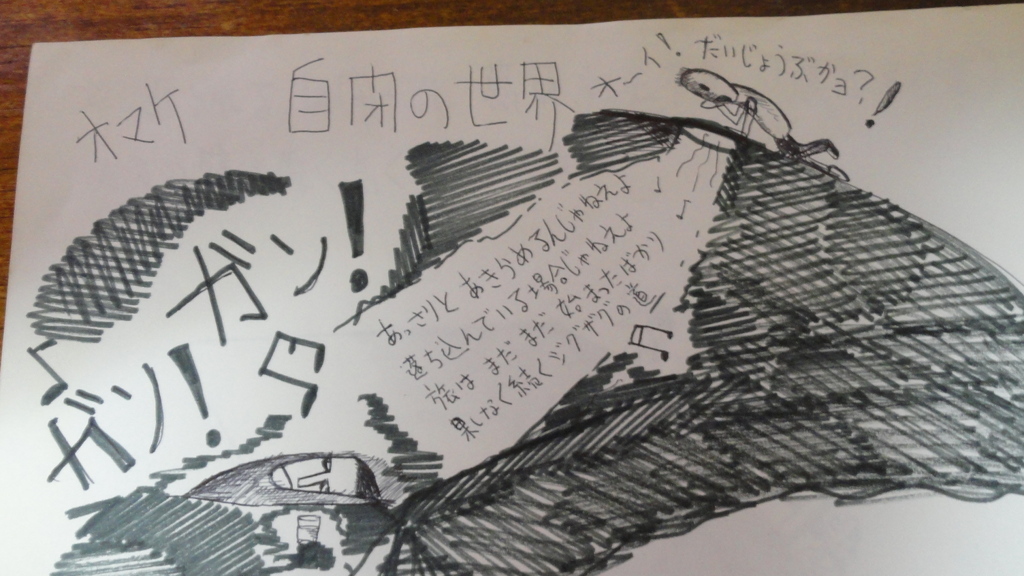 オマケ
自閉の世界
オーイ! だいじょうぶかョ?!
ガン!
ガン!
あっさりと あきらめるんじゃねえよ
落ち込んでいる場合じゃねえよ
旅は まだ まだ 始まったばかり
果しなく続くジグザグの道